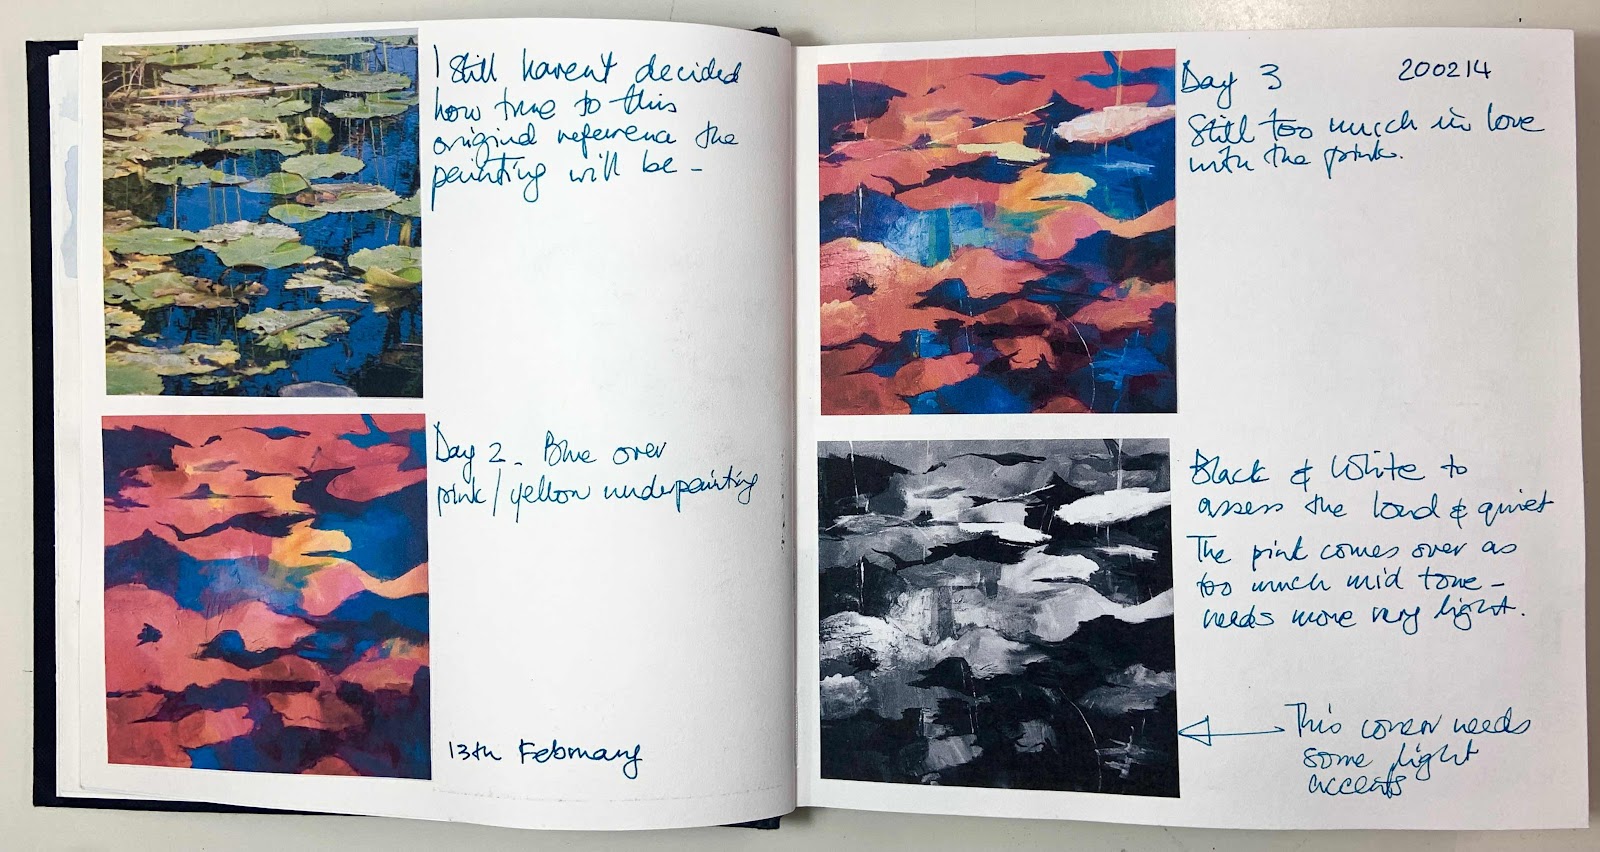 I still haven't decided
how true to this
original reference the
painting will be -
Day 2 - Blue over
pink/yellow underpainting
13th February
Day 3
200214
Still too much in love
with the pink.
Black & White to
assess the loud & quiet
The pink comes over as
too much mid tone -
needs more very light.
This corner needs
some light
accents